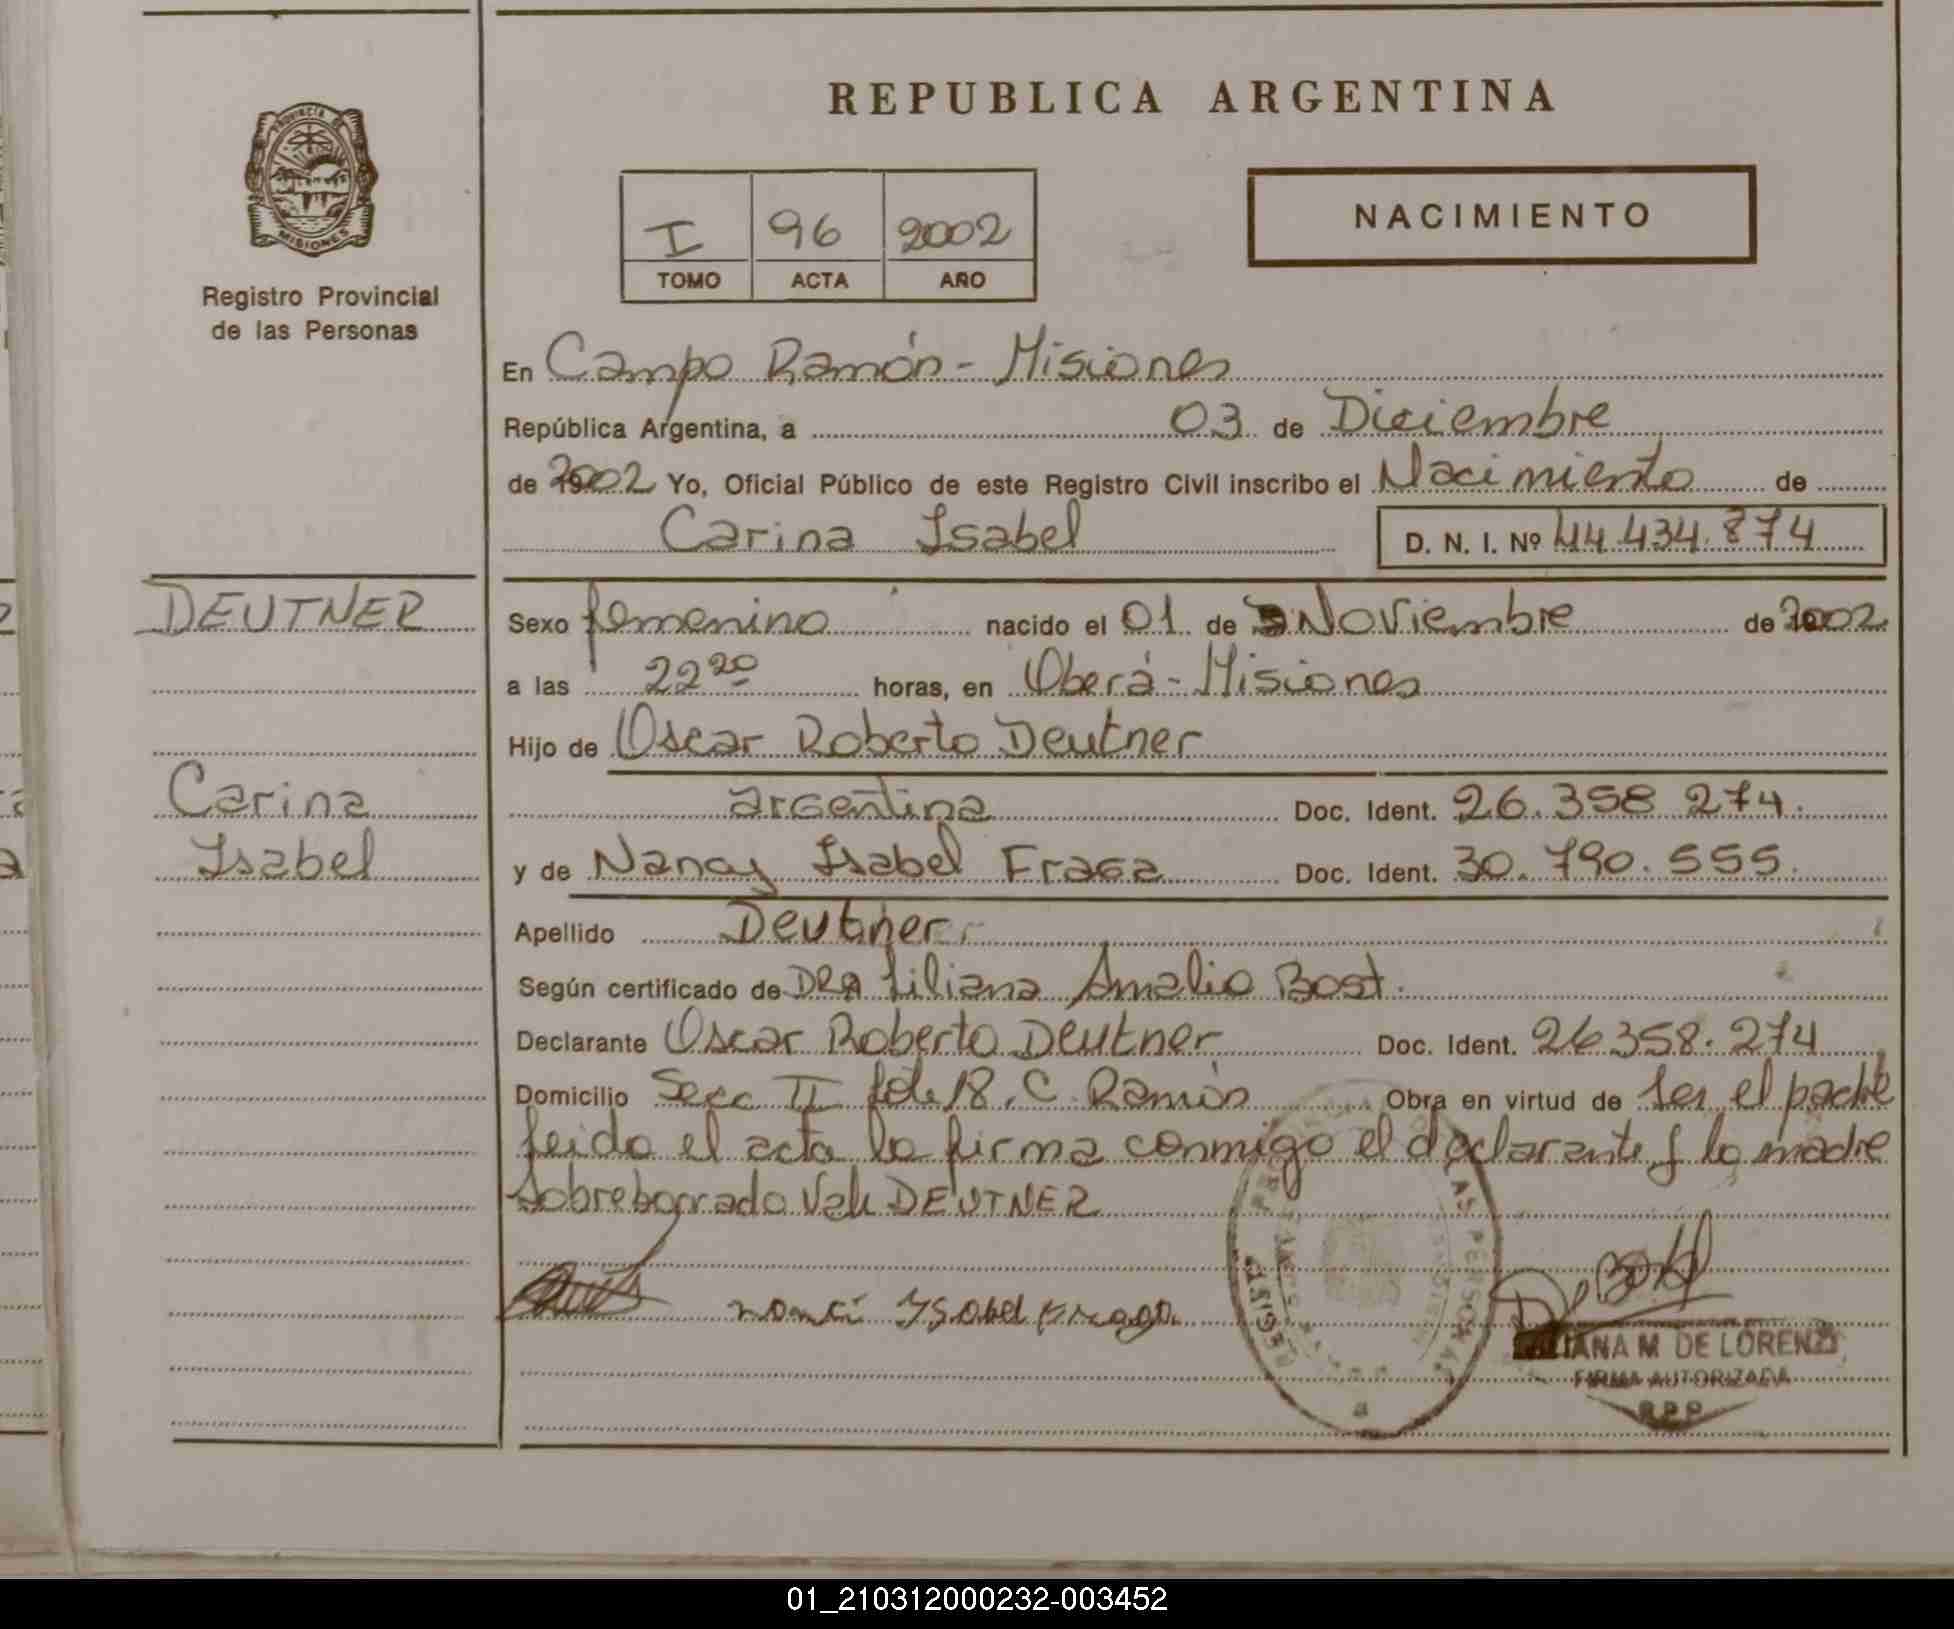 REPUBLICA ARGENTINA
PROVINCIA DE
MISIONES
Registro Provincial
de las Personas
I 96 2002
TOMO ACTA AÑO
NACIMIENTO
En Campo Ramón - Misiones
República Argentina, a 03 de Diciembre
de 2002 Yo, Oficial Público de este Registro Civil inscribo el Nacimiento de
Carina Isabel D. N. I. Nº 44.434.874
DEUTNER
Sexo femenino nacido el 01 de Noviembre de 2002
a las 22 20 horas, en Oberá - Misiones
Hijo de Oscar Roberto Deutner
Carina
argentina Doc. Ident. 26.358 274.
Isabel
y de Nancy Isabel Fraga Doc. Ident. 30.790.555.
Apellido Deutner
Según certificado de DRA Liliana Amalia Bost.
Declarante Oscar Roberto Deutner Doc. Ident. 26 358.274
Domicilio Secc II Lote 18. C. Ramón Obra en virtud de ser el padre
leido el acta la firma conmigo el declarante y la madre
Sobreborrado Vale DEUTNER
nanci Ysabel Fraga
IANA M DE LORENZI
FIRMA AUTORIZADA
R.P.P.
01_210312000232-003452